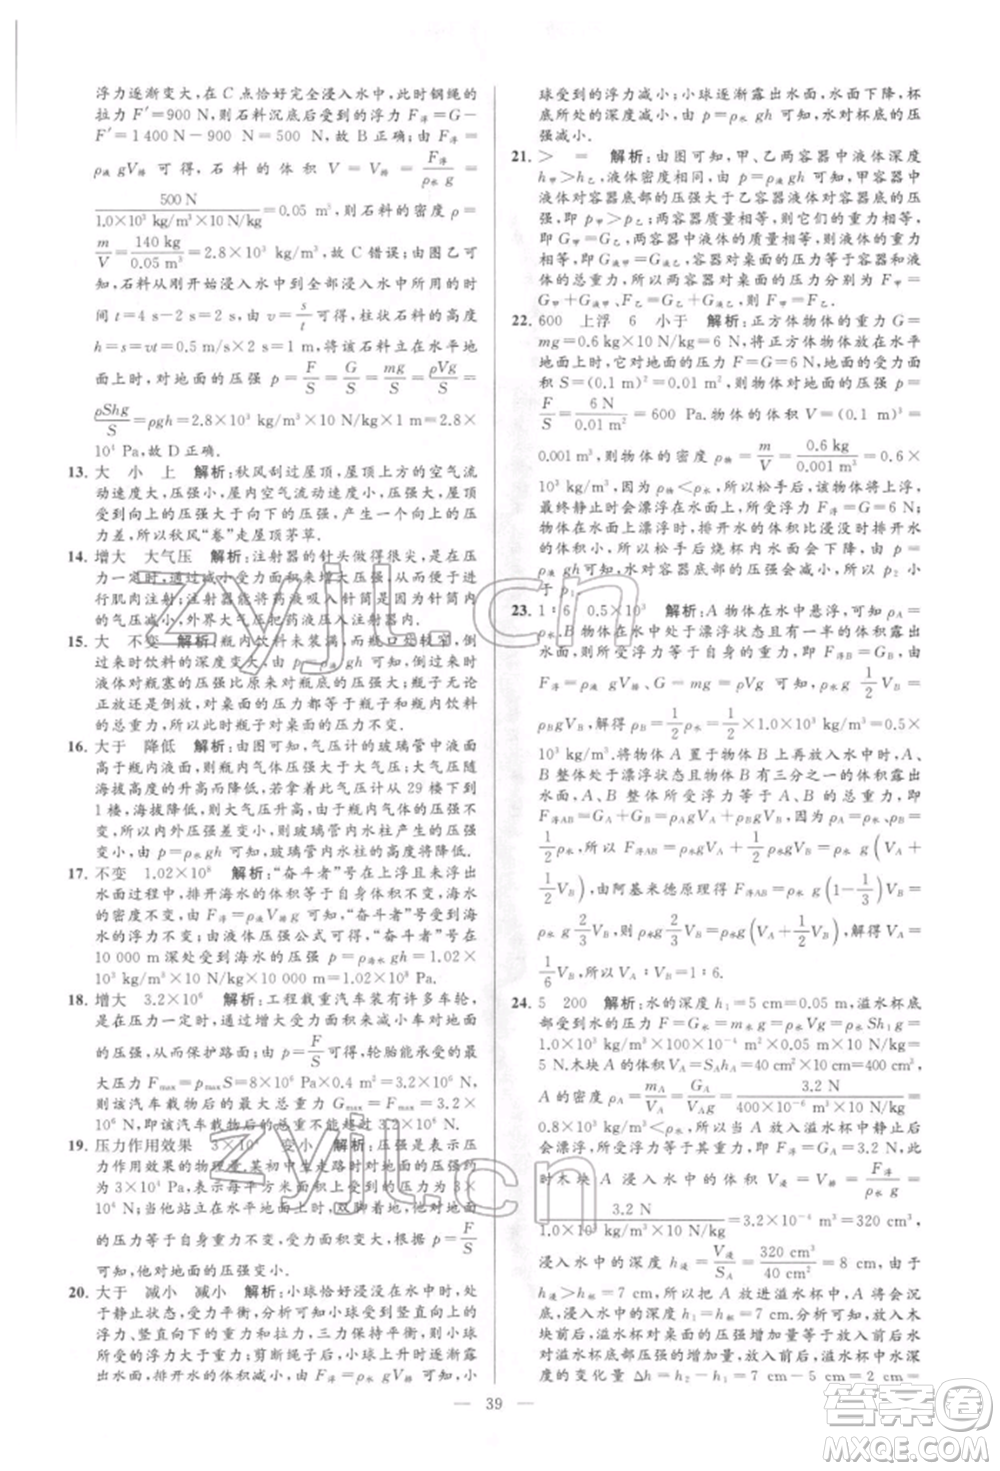 浮力逐渐变大,在 C 点恰好完全浸入水中,此时钢绳的
拉力 F′=900 N,则石料沉底后受到的浮力 F浮=G-
F′=1 400 N-900 N=500 N,故 B 正确;由 F浮=
ρ液 gV排 可得,石料的体积 V=V排=F浮/ρ水 g=
500 N/1.0×10³ kg/m³×10 N/kg=0.05 m³,则石料的密度 ρ=
m/V=140 kg/0.05 m³=2.8×10³ kg/m³,故 C 错误;由图乙可
知,石料从刚开始浸入水中到全部浸入水中所用的时
间 t=4 s-2 s=2 s,由 v=s/t 可得,柱状石料的高度
h=s=vt=0.5 m/s×2 s=1 m,将该石料立在水平地
面上时,对地面的压强 p=F/S=G/S=mg/S=ρVg/S=
ρShg/S=ρgh=2.8×10³ kg/m³×10 N/kg×1 m=2.8×
10⁴ Pa,故 D 正确.
13. 大 小 上 解析:秋风刮过屋顶,屋顶上方的空气流
动速度大,压强小,屋内空气流动速度小,压强大,屋顶
受到向上的压强大于向下的压强,产生一个向上的压
力差,所以秋风“卷”走屋顶茅草.
14. 增大 大气压 解析:注射器的针头做得很尖,在压
力一定时,通过减小受力面积来增大压强,容易对人进
行肌肉注射;注射器能将药液吸入针筒是因为针筒内
压强小,外界大气压将药液压入注射器内.
15. 大 不变 解析:瓶内饮料未装满,而瓶口是较窄的,倒
过来时饮料的深度变大,由 p=ρ液 gh 可知,倒过来时
液体对瓶塞的压强比正放时对瓶底的压强大;瓶子无论
正放还是倒放,对桌面的压力都等于瓶和瓶内饮料
的总重力,所以,此时瓶子对桌面的压力不变.
16. 大于 降低 解析:由图可知,气压计的玻璃管中液面
高于瓶内液面,则瓶内气体压强大于瓶外大气压;随着
海拔高度的升高大气压降低,若拿着气压计从 29 楼到
1 楼,海拔高度降低,则大气压升高,而瓶内气体压强不变,
所以内外压强差变小,则玻璃管内水柱产生的压强变
小,根据 p=ρ水 gh 可知,玻璃管内水柱的高度降低.
17. 不变 1.02×10⁸ 解析:“奋斗者”号在上浮且未浮出
水面过程中,排开海水的体积等于自身体积不变,海水
的密度不变,由 F浮=ρ液 V排 g 可知,“奋斗者”号受到海水
的浮力不变;由液体压强公式可得,“奋斗者”号在
10 000 m 深处受到海水的压强 p=ρ海水 gh=1.02×
10³ kg/m³×10 N/kg×10 000 m=1.02×10⁸ Pa.
18. 增大 3.2×10⁶ 解析:工程载重汽车装有许多车轮,
是在压力一定时,通过增大受力面积来减小车对地面
的压强,从而保护路面;由 p=F/S 可得,轮胎能承受的最
大压力 Fmax=pmaxS=8×10⁶ Pa×0.4 m²=3.2×10⁶ N,
则该汽车载物后的最大总重力 Gmax=Fmax=3.2×10⁶ N,
所以该汽车载物后的总重最大不能超过 3.2×10⁶ N.
19. 压力作用效果 3×10⁴ 变小 解析:压强是表示压
力作用效果的物理量,某初中生走路时对地面的压强约
为 3×10⁴ Pa,表示每平方米地面受到的压力是 3×
10⁴ N;当他站立在操场上时,双脚着地,对地面的压力
等于自身重力不变,受力面积变大,由 p=F/S
可知,他对地面的压强变小.
20. 大于 减小 减小 解析:小球恰好浸没在水中时,处
于静止状态,受力平衡,分析可知小球受到竖直向上的
浮力、竖直向下的重力和拉力,三力保持平衡,所以小球
所受的浮力大于重力;剪断绳子后,小球上升时露出水
面的体积变大,浸在水中的体积减小,由 F浮=ρ液 gV排 可知,小
球受到的浮力减小;小球逐渐露出水面,液面下降,杯
底所处的深度减小,由 p=ρ水 gh 可知,水对杯底的压
强减小.
21. > = 解析:由图可知,甲、乙两容器中液体深度
h甲>h乙,液体密度相同,由 p=ρ液 gh 可知,甲容器中
液体对容器底部的压强大于乙容器中液体对底部的压
强,即 p甲>p乙;两容器质量相等,则它们的重力相等,
即 G甲=G乙,两容器中液体的质量相等,则液体的重力相等,
即 G液甲=G液乙,容器对桌面的压力等于容器和液体
的总重力,所以两容器对桌面的压力分别为 F甲=
G甲+G液甲,F乙=G乙+G液乙,则 F甲=F乙.
22. 600 上浮 6 小于 解析:正方体物体的重力 G=
mg=0.6 kg×10 N/kg=6 N,将正方体物体放在水平
地面上时,它对地面的压力 F=G=6 N,地面的受力面
积 S=(0.1 m)²=0.01 m²,则物体对地面的压强 p=
F/S=6 N/0.01 m²=600 Pa.物体的体积 V=(0.1 m)³=
0.001 m³,物体的密度 ρ物=m/V=0.6 kg/0.001 m³=0.6×
10³ kg/m³,因为 ρ物<ρ水,所以松手后物体将上浮,
最终静止时会漂浮在水面上,所受浮力 F浮=G=6 N.
因为物体漂浮时,排开水的体积比浸没时排开水的
体积小,所以松手后烧杯内水面会下降,由 p=
ρ水 gh 可知,水对烧杯底部的压强会减小,所以 p₂ 小于
p₁.
23. 1∶6 0.5×10³ 解析:A 物体在水中悬浮,可知 ρA=
ρ水,B 物体在水中处于漂浮状态且有一半的体积露出
水面,所以 B 物体受到的浮力等于自身的重力,即 F浮B=
GB,由 F浮=ρ液 gV排 及 G=mg=ρVg 可知,ρ水 g 1/2 VB=
ρBgVB,解得 ρB=1/2 ρ水=1/2×1.0×10³ kg/m³=0.5×
10³ kg/m³.将物体 A 置于物体 B 上再放入水中时,A、
B 整体处于漂浮状态且物体 B 有三分之一的体积露出
水面,所以整体所受浮力等于 A、B 的总重力,则
F浮AB=GA+GB=ρAgVA+ρBgVB=ρ水 gVA+
1/2 ρ水 gVB,所以 F浮AB=ρ水 gVA+1/2 ρ水 gVB=ρ水 g(VA+
1/2 VB),由阿基米德原理得 F浮AB=ρ水 g(VA+
2/3 VB)-… VB=ρ水 g(VA+1/2 VB),解得 VA=
1/6 VB,所以 VA∶VB=1∶6.
24. 5 200 解析:水的深度 h₁=5 cm=0.05 m,溢水杯底
部受到水的压力 F=G水=m水 g=ρ水 Vg=ρ水 Sh₁g=
1.0×10³ kg/m³×100×10⁻⁴ m²×0.05 m×10 N/kg=
5 N.木块 A 的体积 VA=SAhA=40 cm²×10 cm=400 cm³,
A 的密度 ρA=mA/VA=GA/VAg=3.2 N/400×10⁻⁶ m³×10 N/kg=
0.8×10³ kg/m³<ρ水,所以当放入 A 物体静止后
会漂浮,所受浮力等于其重力,即 F浮=GA=3.2 N,此
时木块 A 浸入水中的体积 V浸=V排=F浮/ρ水 g=
3.2 N/1.0×10³ kg/m³×10 N/kg=3.2×10⁻⁴ m³=320 cm³,
浸入水中的深度 h浸=V浸/SA=320 cm³/40 cm²=8 cm,由于
溢水杯高 h杯=7 cm,h浸>h杯,所以把 A 放进溢水杯,A 将会沉
底,浸入水中的深度 h₁=h杯=7 cm.分析可知,放入木
块前后,溢水杯对桌面的压强增加量等于放入前后水
对溢水杯底的压强增加量,放入前后溢水杯中水深
度的变化量 Δh=h₂-h₁=7 cm-5 cm=2 cm=
39
zyjl.cn
zyjl.cn
答案圈
MXQE.COM